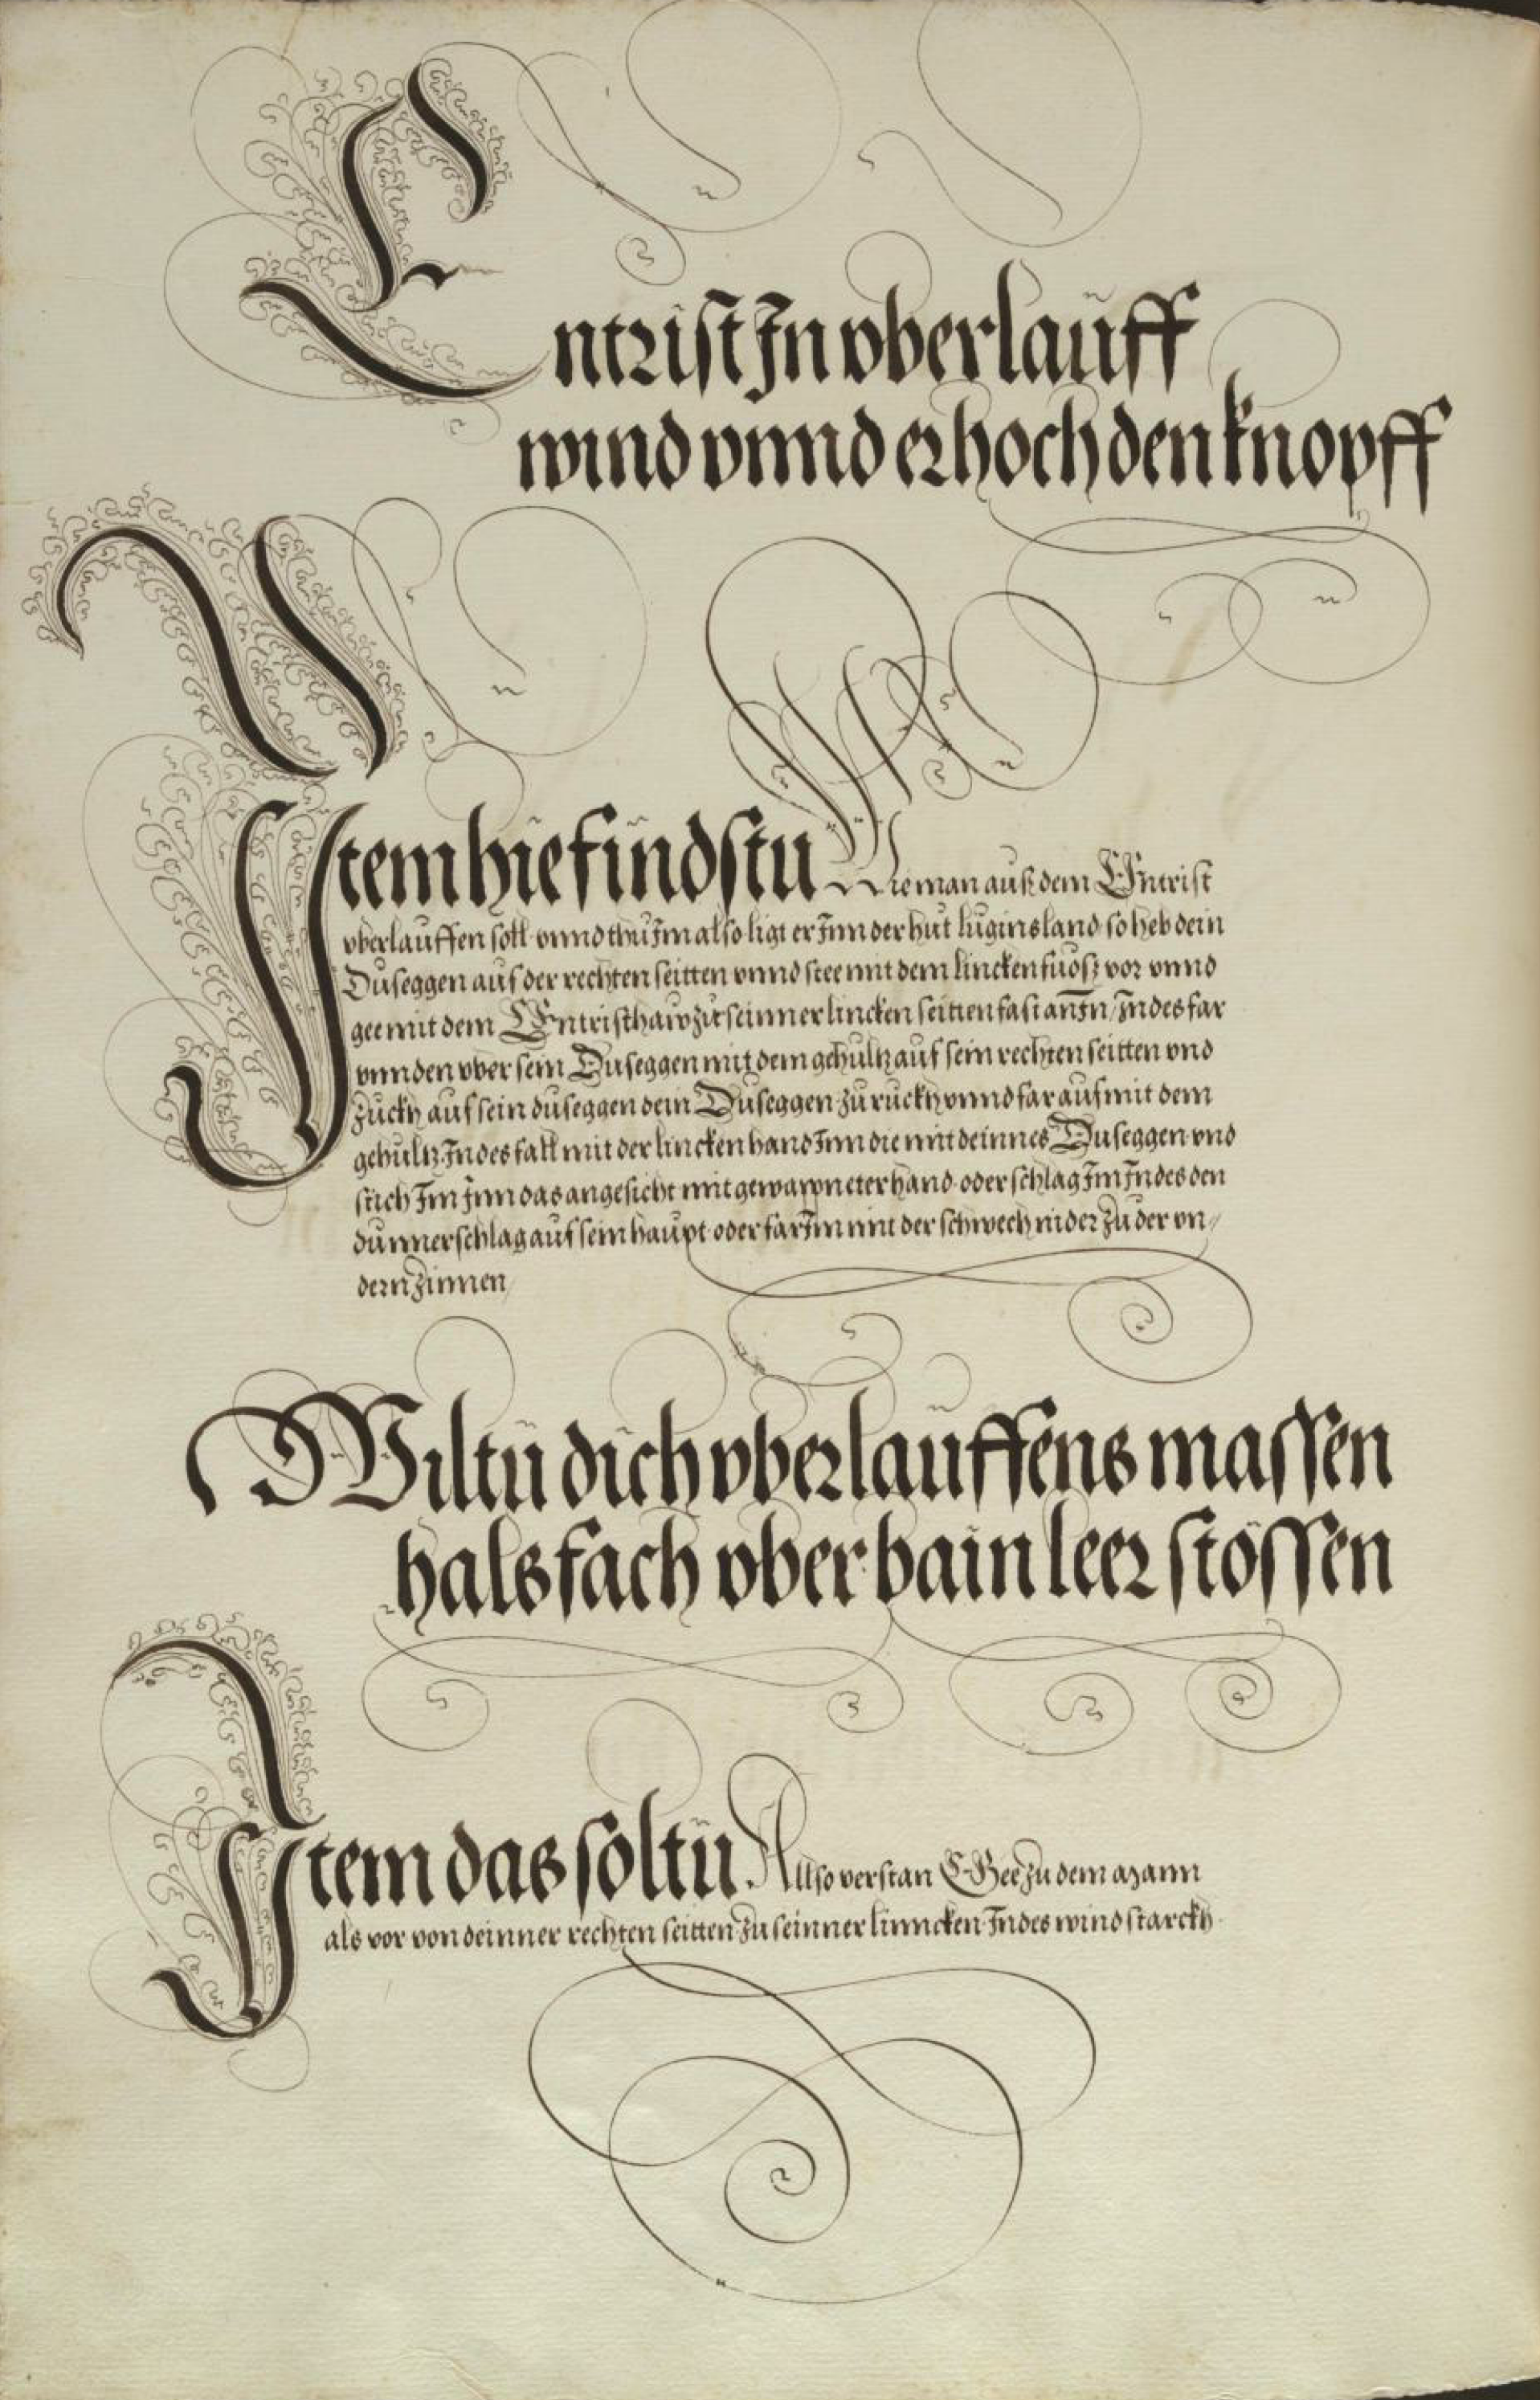 Entrist In vberlauff
wind vnnd erhoch den knopff
Item hie findstu Wie man auß dem Entrist
vberlauffen soll vnnd thu Im also ligt er Inn der hut luginsland so heb dein
Duseggen auf der rechten seitten vnnd stee mit dem lincken fuosz vor vnnd
gee mit dem Entristhaw zu seinner lincken seitten fast an In / Indes far
vnnden vber sein Duseggen mit dem gehultz auf sein rechten seitten vnd
zuckh auf sein duseggen dein Duseggen zu ruckh vnnd far auf mit dem
gehultz Indes fall mit der lincken hand Inn die mit deinnes Duseggen vnd
stich Im Inn das angesicht mit gewapneter hand oder schlag Im Indes den
dunnerschlag auf sein haupt oder far Im mit der schwech nider zu der vn/
dern zinnen /
Wiltu dich vberlauffens massen
halsfach vber bain leer stossen
Item das soltu Allso verstan Gee zu dem Mann
als vor von deinner rechten seitten zu seinner linncken Indes wind starckh